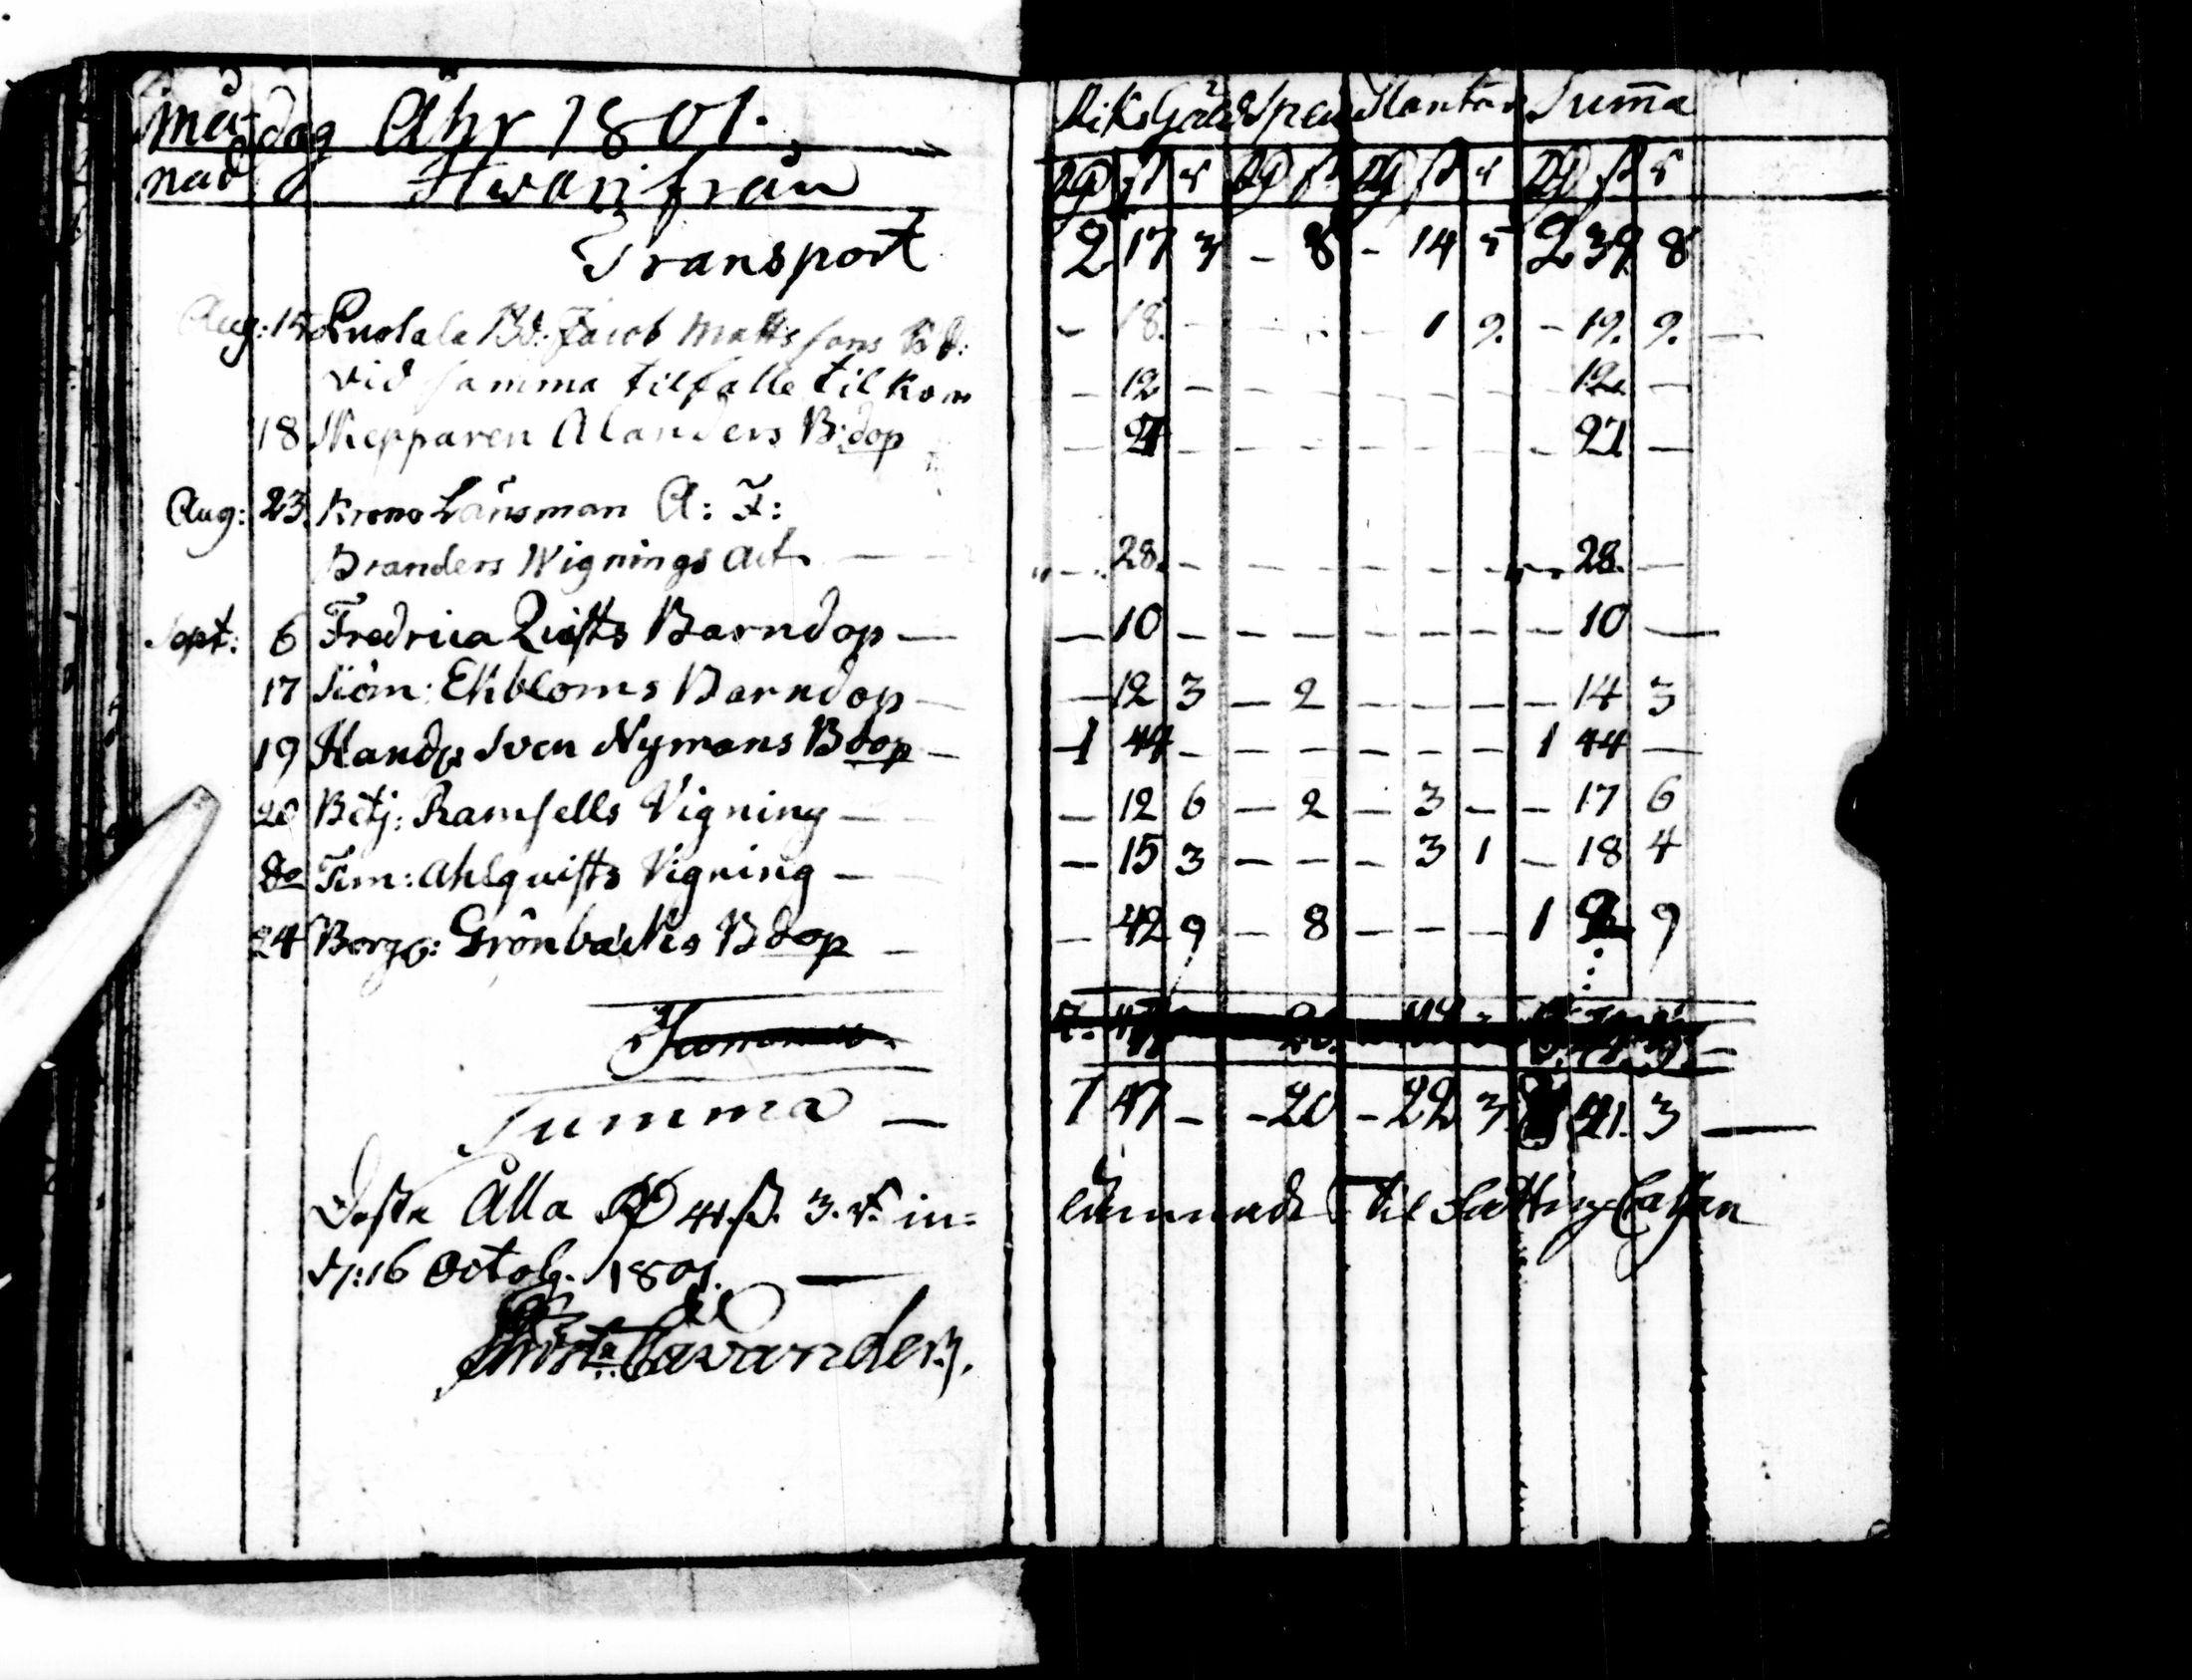 må- dag Åhr 1801. Riks Gäld Spec Slantar Summa
nad Hwarifrån Rd ß r Rd ß Rd ß r Rd ß r
Transport 2 17 3 - 8 - 14 5 2 39 8
Aug: 15 Jacob Mattssons Bd: - 18. - - - 1 9. - 19. 9. -
vid samma tilfälle tilkom - 12 - - - - - - - 12. -
18 Skepparen Alanders B:dop - 27 - - - - - - - 27 -
Aug: 23. Krono Länsman A: F:
Branders Wignings Act. - 28. - - - - - - - 28. -
Sept: 6 Fredrica Qvists Barndop - - 10 - - - - - - - 10 -
17 Ekbloms Barndop - - 12 3 - 2 - - - - 14 3
19 Hand: Sven Nymans Bdop - 1 44 - - - - - - 1 44 -
20 Betj: Ramsells Vigning - - 12 6 - 2 - 3 - - 17 6
do Tim: Ahlqvists Vigning - - 15 3 - - - 3 1 - 18 4
24 Borg: Grönbäcks Bdop - - 42 9 - 8 - - - 1 2 9
Summa
Summa - 7 47 - - 20 - 22 3. 41. 3 -
Rd 41 ß. 3. r. in= til Cassan
d: 16 Octob. 1801. -
Cavander.